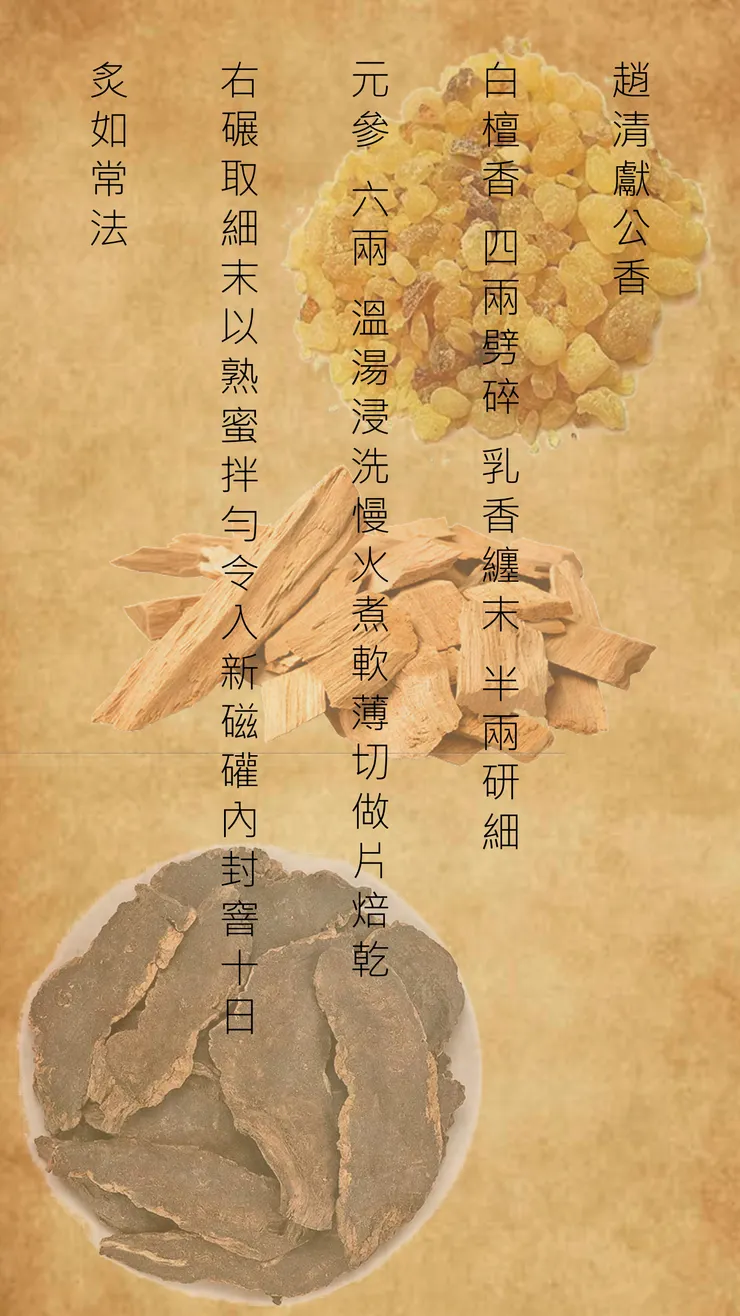 趙清獻公香
白檀香 四兩劈碎 乳香纏末 半兩研細
元參 六兩 溫湯浸洗慢火煮軟薄切做片焙乾
右碾取細末以熟蜜拌勻令入新磁罐內封窨十日
炙如常法